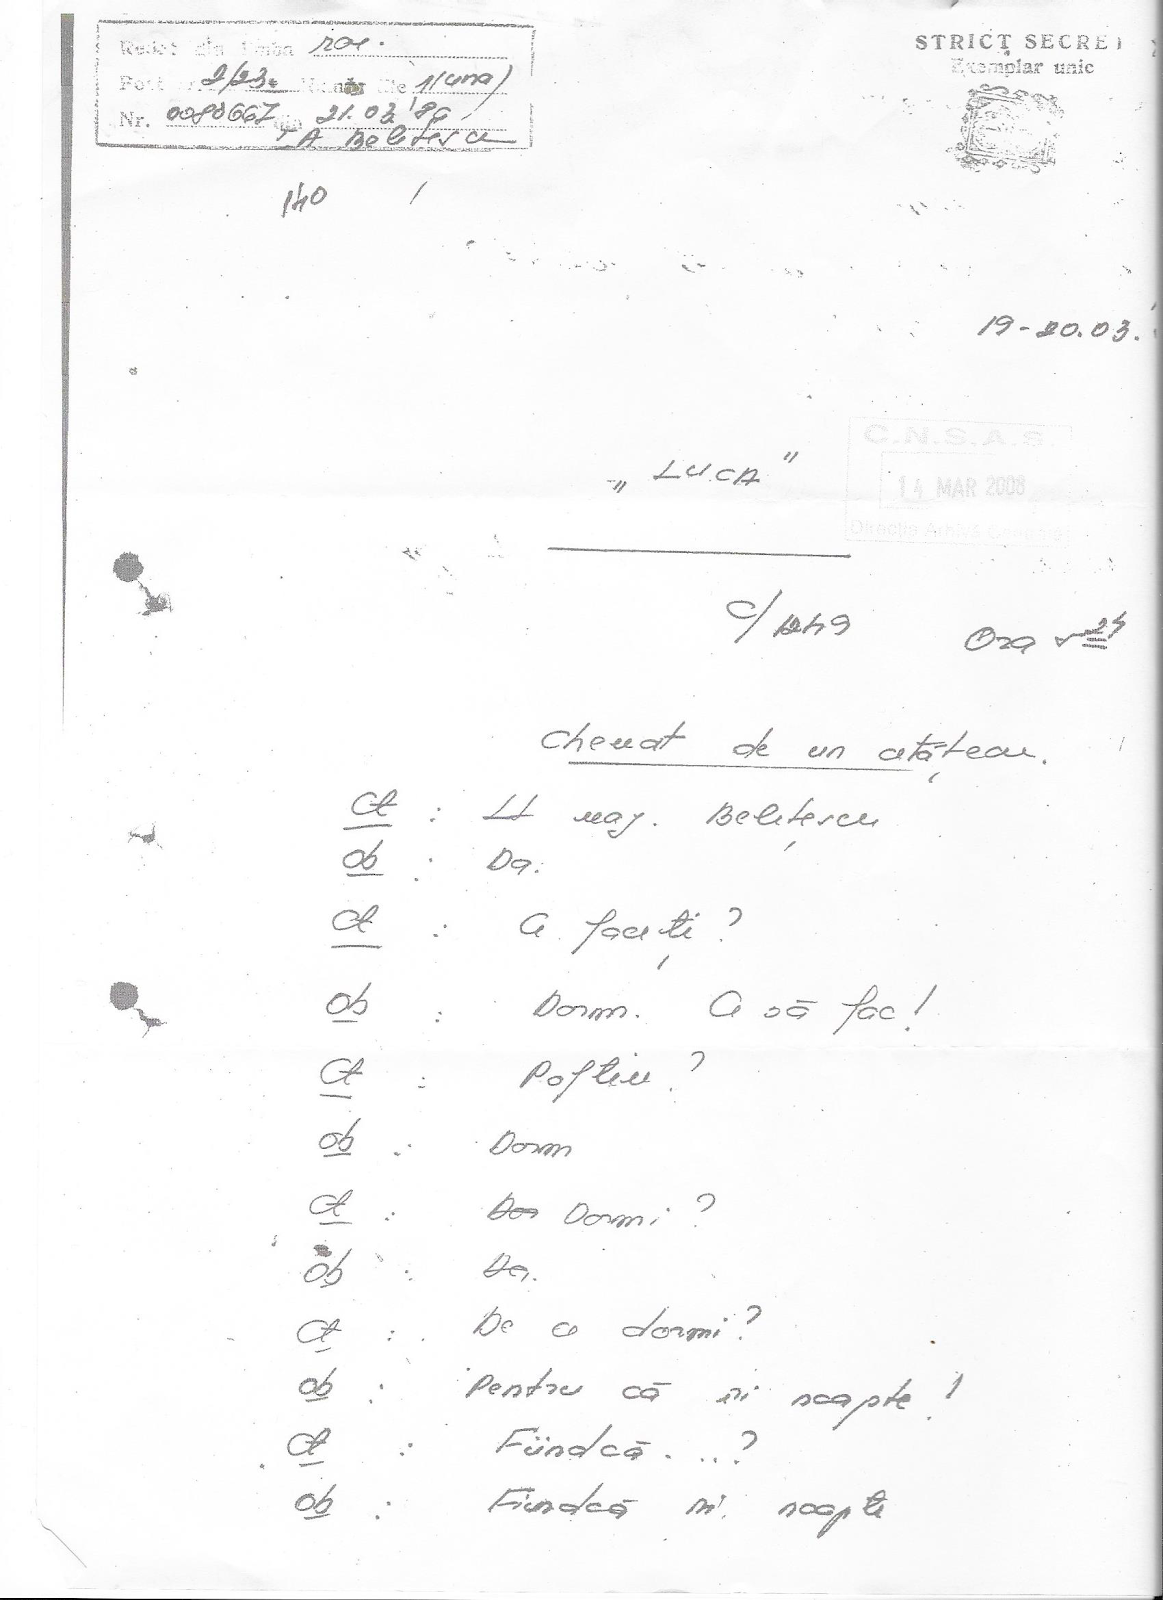 Redat din limba rom.
Post nr. 2/23. Număr file 1(una)
Nr. 0080667 din 21.03.'86
TA Belitescu
STRICT SECRET
Exemplar unic
140
19-20.03.
C.N.S.A.S.
14 MAR 2008
Direcția Arhivă Centrală
„LUCA"
C/1249 Ora 24
Chemat de un atățeau.
Ct : Lt maj. Belițescu
ob : Da.
Ct : Ce faceți?
ob : Dorm. Ce să fac!
Ct : Poftim?
ob : Dorm
Ct : Dormi?
ob : Da.
Ct : De ce dormi?
ob : Pentru că îi noapte!
Ct : Fiindcă...?
ob : Fiindcă îi noapte